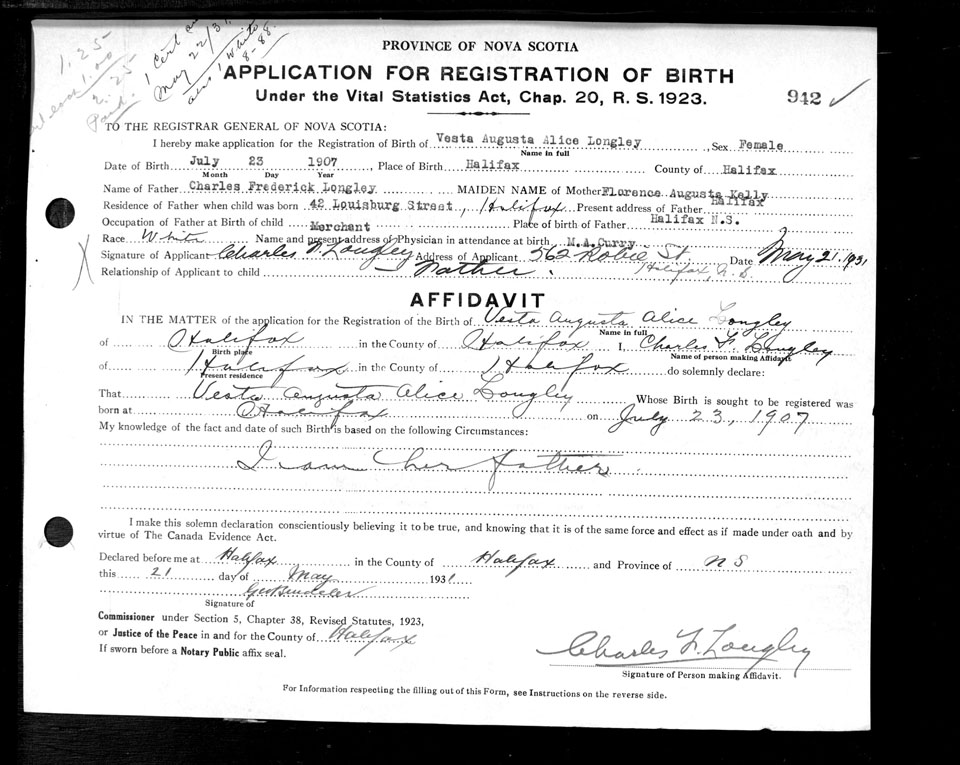 1.25
1.00
2.25
Paid.
1 Cert
May 22/31
8-88.
PROVINCE OF NOVA SCOTIA
APPLICATION FOR REGISTRATION OF BIRTH
Under the Vital Statistics Act, Chap. 20, R. S. 1923.
942 ✓
TO THE REGISTRAR GENERAL OF NOVA SCOTIA:
I hereby make application for the Registration of Birth of Vesta Augusta Alice Longley Sex Female
Name in full
Date of Birth July 23 1907 Place of Birth Halifax County of Halifax
Month Day Year
Name of Father Charles Frederick Longley MAIDEN NAME of Mother Florence Augusta Kelly
Residence of Father when child was born 42 Louisburg Street, Halifax Present address of Father Halifax
Occupation of Father at Birth of child Merchant Place of birth of Father Halifax N.S.
Race White Name and present address of Physician in attendance at birth M.A. Curry
Signature of Applicant Charles F. Longley Address of Applicant 562 Robie St. Date May 21. 1931
Halifax, N.S.
Relationship of Applicant to child Father.
AFFIDAVIT
IN THE MATTER of the application for the Registration of the Birth of Vesta Augusta Alice Longley
Name in full
of Halifax in the County of Halifax I, Charles F. Longley
Birth place Name of person making Affidavit
of Halifax in the County of Halifax do solemnly declare:
Present residence
That Vesta Augusta Alice Longley Whose Birth is sought to be registered was
born at Halifax on July 23, 1907
My knowledge of the fact and date of such Birth is based on the following Circumstances:
I am her father.
I make this solemn declaration conscientiously believing it to be true, and knowing that it is of the same force and effect as if made under oath and by
virtue of The Canada Evidence Act.
Declared before me at Halifax in the County of Halifax and Province of N S
this 21 day of May 1931
Signature of
Commissioner under Section 5, Chapter 38, Revised Statutes, 1923,
or Justice of the Peace in and for the County of Halifax
If sworn before a Notary Public affix seal.
Charles F. Longley
Signature of Person making Affidavit.
For Information respecting the filling out of this Form, see Instructions on the reverse side.